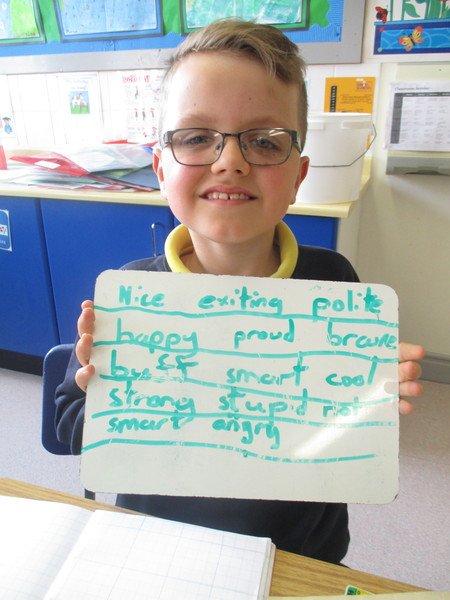 Nice exiting polite
happy proud braune
buff smart cool
strong stupid not
smart angry